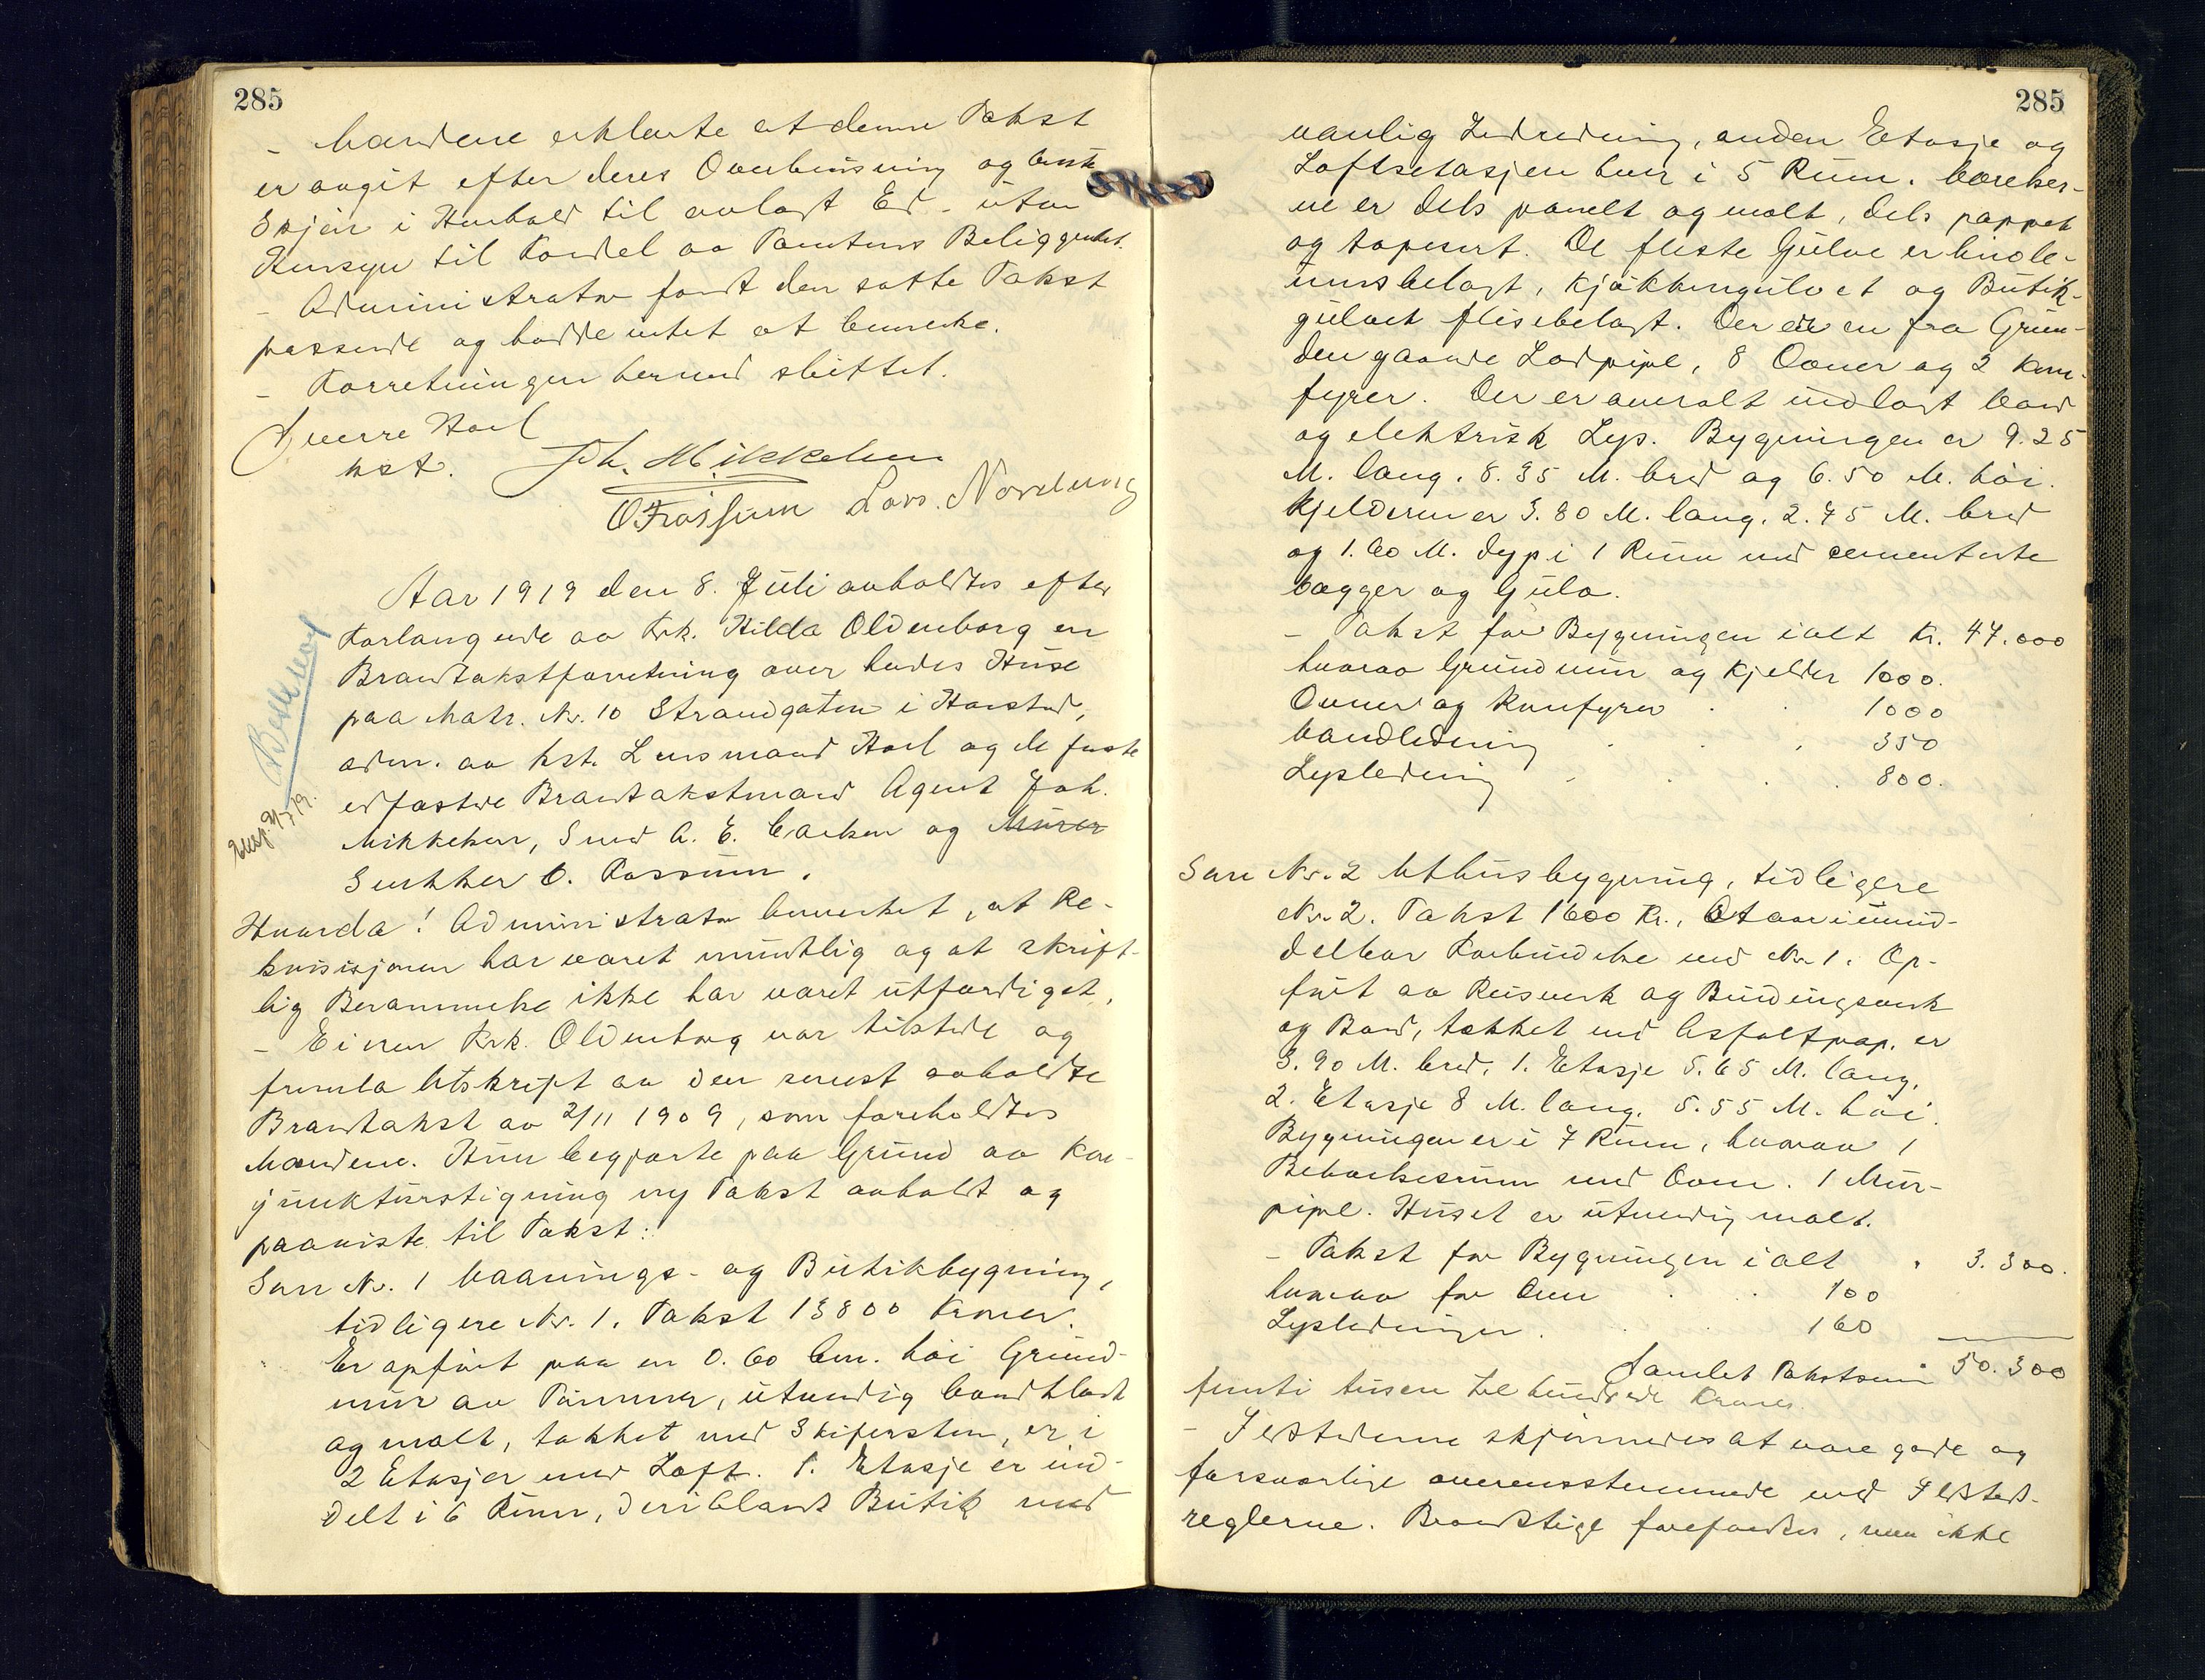 285
- Mændene erklærte at denne Takst
er avgit efter deres Overbevisning og beste
Skjøn i Henhold til avlagt Ed - uten
Hensyn til Fordel av Tomtens Beliggenhet.
- Administrator fandt den satte Takst
passende og hadde intet at bemerke.
- Forretningen hermed sluttet.
Sverre Hoel
kst. Joh. Mikkelsen
O Fossum Lars. Nordeng
Aar 1919 den 8. Juli avholdtes efter
Forlangende av Frk. Hilda Oldenborg en
Brandtakstforretning over hendes Huse
paa Matr. Nr. 10 Strandgaten i Harstad,
adm. av kst. Lensmand Hoel og de faste
edfæstede Brandtakstmænd Agent Joh.
Mikkelsen, Smed A. E. Carlsen og Murer
Snekker O. Fossum.
Eksp. 21/7 19.
Hvorda! Administrator bemerket, at Re-
kvisisjonen har været mundtlig og at skrift-
lig Berammelse ikke har været utfærdiget.
- Eieren Frk. Oldenborg var tilstede og
fremla Utskrift av den senest avholdte
Brandtakst av 2/11 1909, som foreholdtes
Mændene. Hun begjærte paa Grund av Kon-
junkturstigning ny Takst avholdt og
paaviste til Takst:
Som Nr. 1 Vaanings- og Butikbygning,
tidligere Nr. 1. Takst 13800 Kroner.
Er opført paa en 0.60 Cm. høi Grund-
mur av Tømmer, utvendig bordklædt
og malt, tækket med Skifersten, er i
2 Etasjer med Loft. 1. Etasje er ind-
delt i 6 Rum, deriblandt Butik med
285
vanlig Indredning, anden Etasje og
Loftsetasjen hver i 5 Rum. Værelser-
ne er dels panelt og malt, dels pappet
og tapesert. De fleste Gulve er linole-
umsbelagt, Kjøkkengulvet og Butik-
gulvet flisebelagt. Der er en fra Grun-
den gaaende Lodpipe, 8 Ovner og 2 Kom-
fyrer. Der er overalt indlagt Vand
og elektrisk Lys. Bygningen er 9.25
M. lang. 8.35 M. bred og 6.50 M. høi.
Kjelderen er 3.80 M. lang. 2.45 M. bred
og 1.60 M. dyp i 1 Rum med cementerte
Vægger og Gulv.
- Takst for Bygningen ialt Kr. 47.000
hvorav Grundmur og Kjelder 1000.
Ovner og Komfyrer . . 1000
Vandledning . . . 350
Lysledning . . . 800.
Som Nr. 2 Uthusbygning, tidligere
Nr. 2. Takst 1600 Kr., Staar i umid-
delbar Forbindelse med Nr 1. Op-
ført av Reisverk og Bindingsverk
og Bord, tækket med Asfaltpap. er
3.90 M. bred. 1. Etasje 5.65 M. lang.
2. Etasje 8 M. lang. 5.55 M. høi.
Bygningen er i 7 Rum, hvorav 1
Beboelsesrum med Ovn. 1 Mur-
pipe. Huset er utvendig malt.
- Takst for Bygningen ialt . 3.300.
hvorav for Ovn . . 100
Lysledninger . . . 160
Samlet Takstsum 50.300
femti tusen tre hundrede Kroner.
- Ildstederne skjønnedes at være gode og
forsvarlige overensstemmende med Ildsteds-
reglerne. Brandstige forefandtes, men ikke